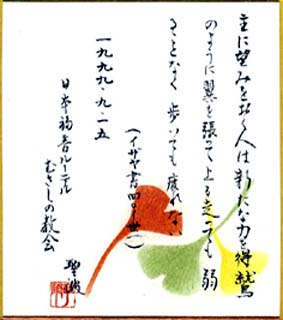 主に望みをおく人は新たな力を得 鷲
のように翼を張って上る 走っても弱
ることなく 歩いても疲れない
(イザヤ書四〇
一九九九.九.一五
日本福音ルーテル
むさしの教会